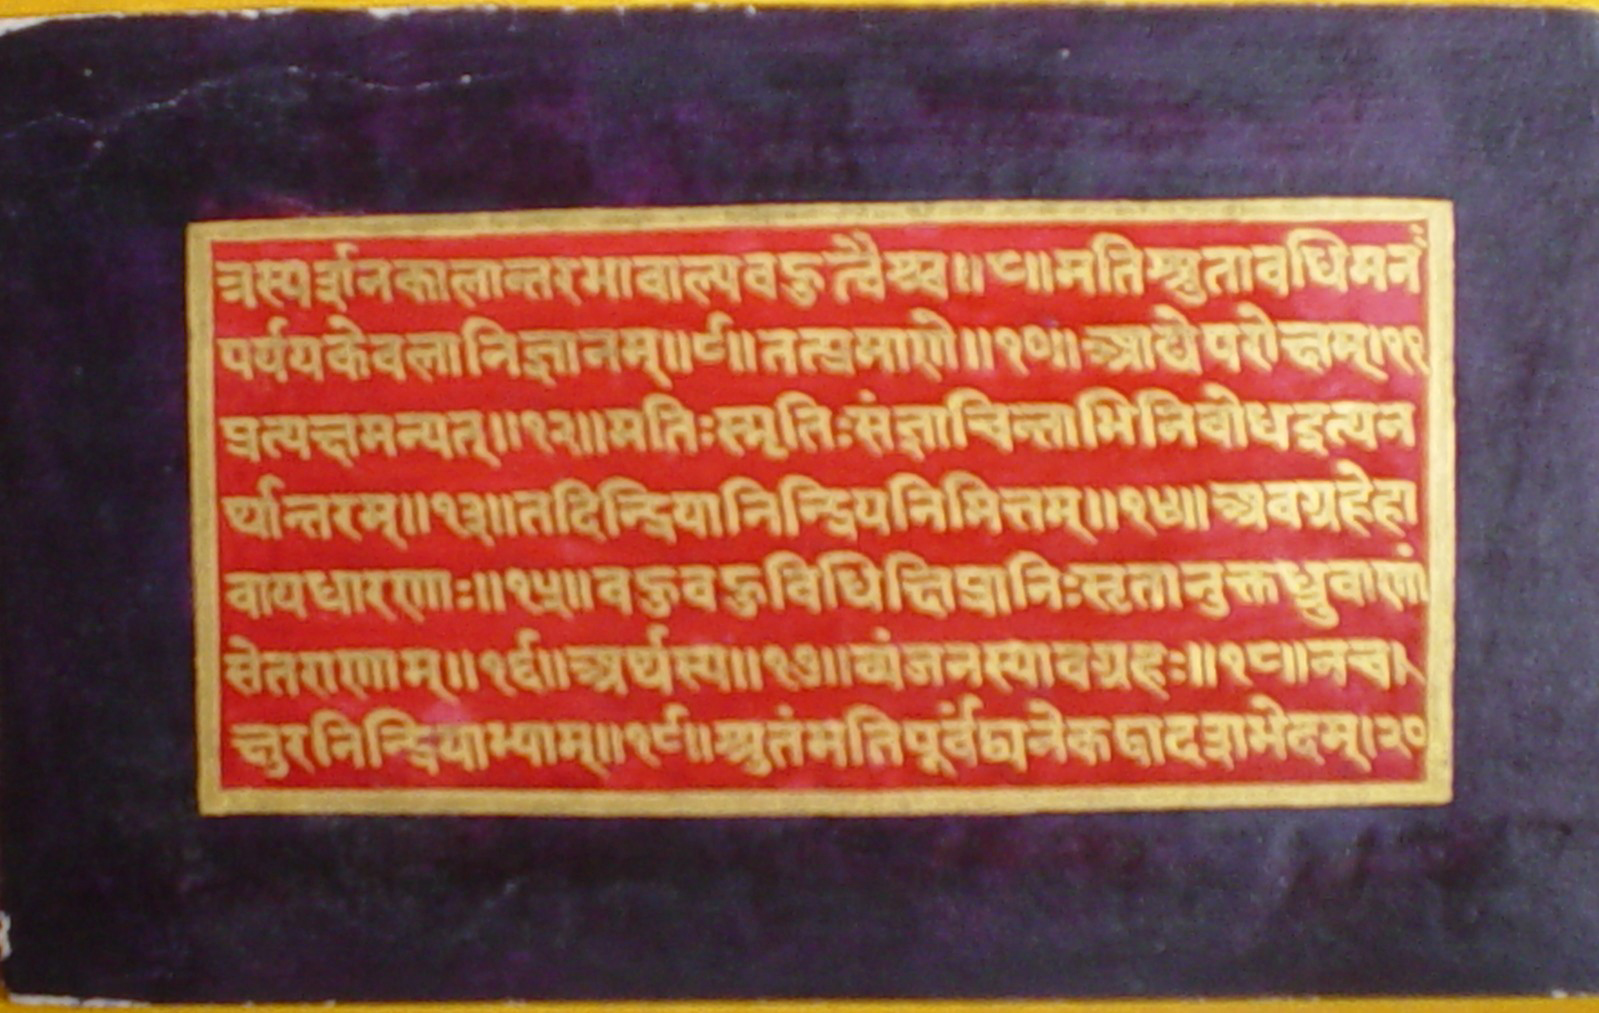 त्रस्पर्शनकालान्तरभावाल्पबहुत्वैश्च॥८॥मतिश्रुतावधिमनं
पर्ययकेवलानिज्ञानम्॥९॥तत्प्रमाणे॥१०॥आद्येपरोक्षम्।११
प्रत्यक्षमन्यत्॥१२॥मतिःस्मृतिःसंज्ञाचिन्ताभिनिबोधइत्यन
र्थान्तरम्॥१३॥तदिन्द्रियानिन्द्रियनिमित्तम्॥१४॥अवग्रहेहा
वायधारणाः॥१५॥बहुबहुविधिक्षिप्रानिःसृतानुक्तध्रुवाणां
सेतराणाम्॥१६॥अर्थस्य॥१७॥व्यंजनस्यावग्रहः॥१८॥नच
क्षुरनिन्द्रियाभ्याम्॥१९॥श्रुतंमतिपूर्वंद्व्यनेकद्वादशभेदम्।२०